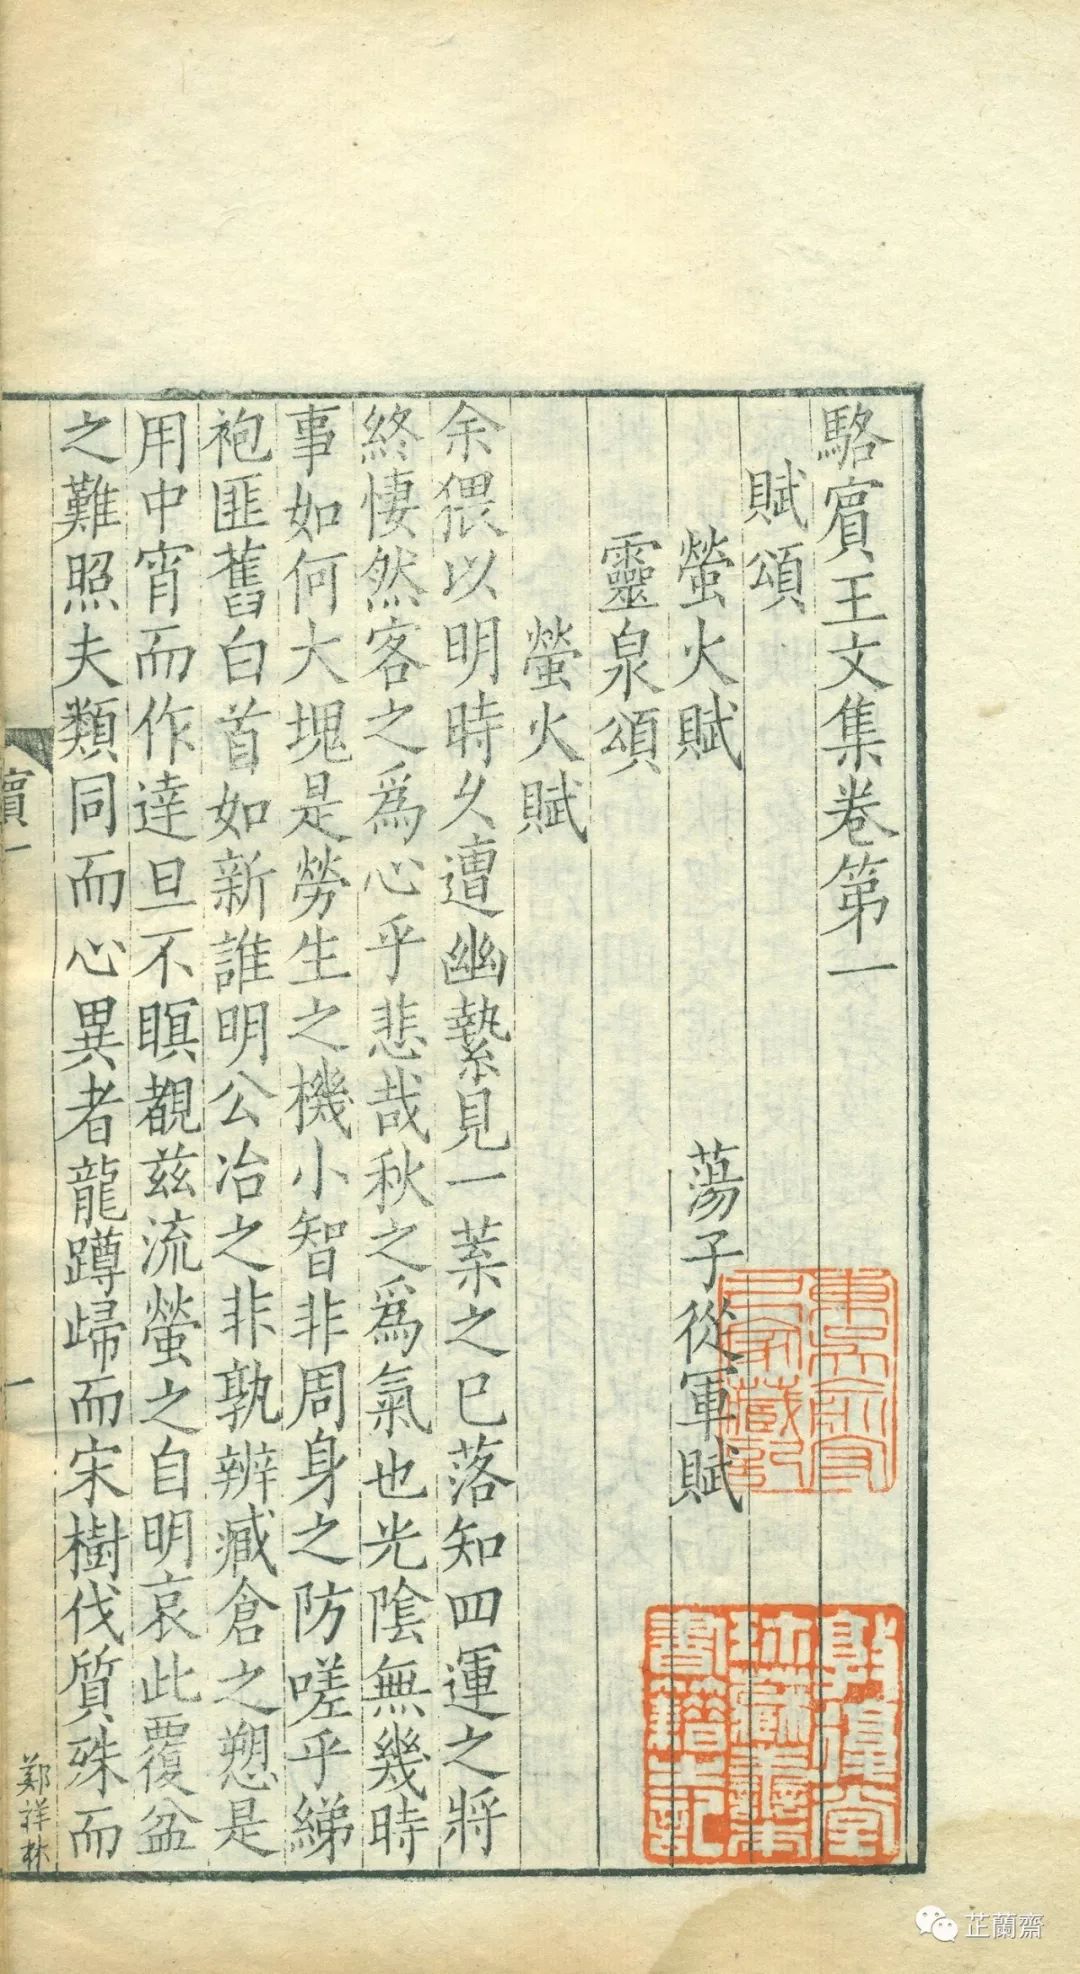 駱賔王文集卷第一
賦頌
螢火賦 蕩子從軍賦
靈泉頌
螢火賦
余猥以明時乆遭幽縶見一葉之已落知四運之將
終悽然客之爲心乎悲哉秋之爲氣也光陰無幾時
事如何大塊是勞生之機小智非周身之防嗟乎綈
袍匪舊白首如新誰明公冶之非孰辨臧倉之愬是
用中宵而作達旦不瞑覩兹流螢之自明哀此覆盆
之難照夫類同而心異者龍蹲歸而宋樹伐質殊而
賔一
一
鄭祥林
芷蘭齋